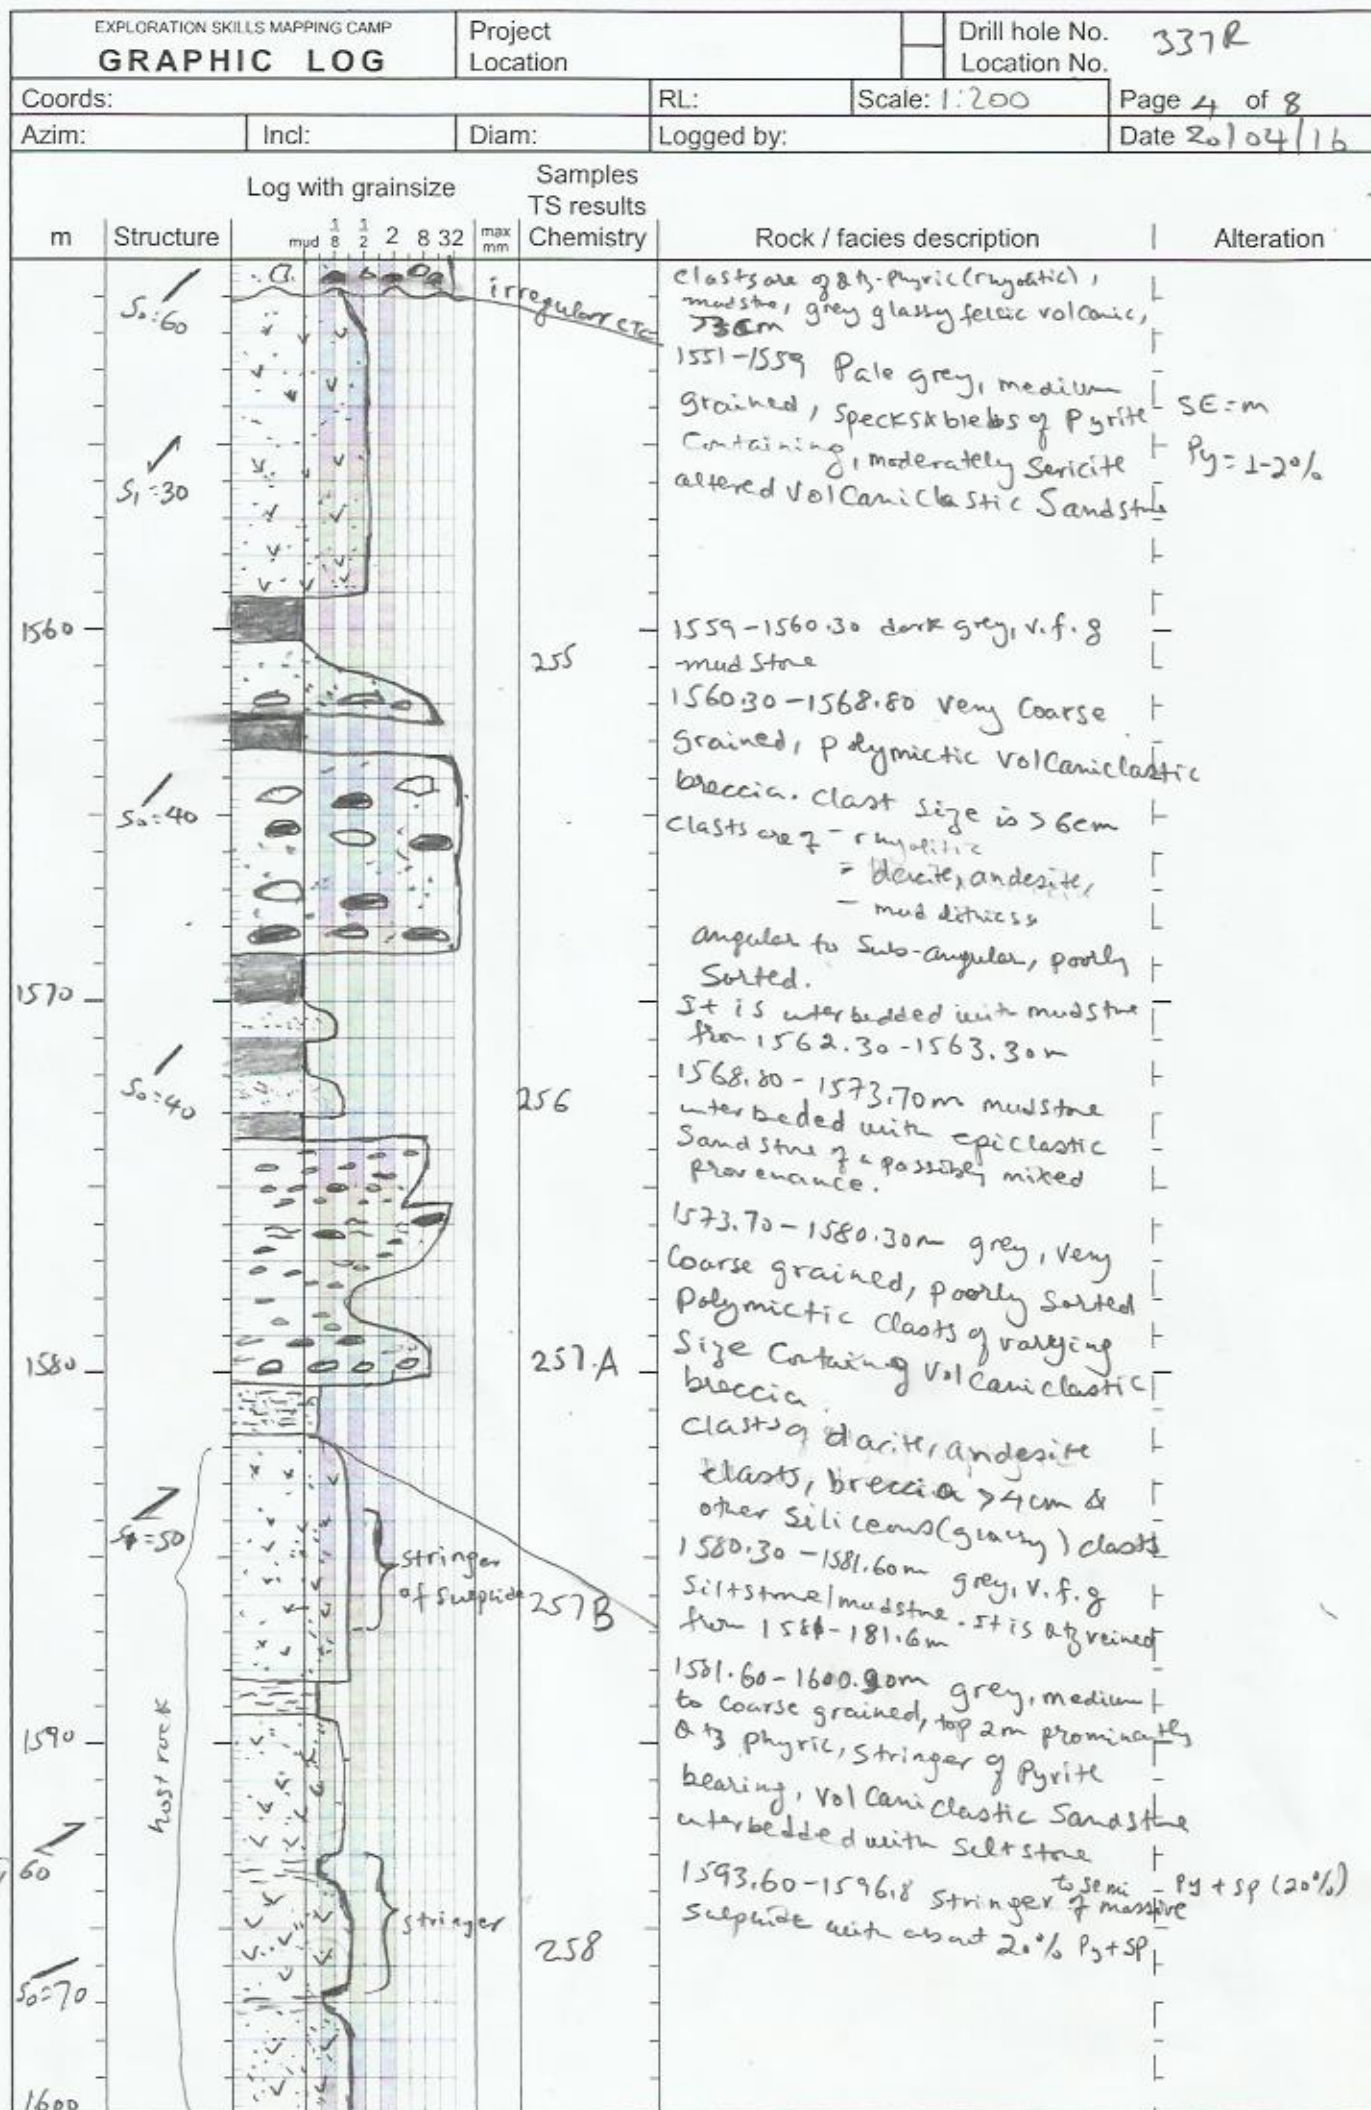 EXPLORATION SKILLS MAPPING CAMP
GRAPHIC LOG
Project
Location
Drill hole No. 337R
Location No.
Coords:
RL:
Scale: 1:200
Page 4 of 8
Azim:
Incl:
Diam:
Logged by:
Date 20/04/16
m
Structure
Log with grainsize
mud 1/8 1/2 2 8 32
max mm
Samples
TS results
Chemistry
Rock / facies description
Alteration
S₀=60
irregular
clasts are of qtz-phyric (rhyolitic),
mudstne, grey glassy felsic volcanic,
>3cm
1551-1559 Pale grey, medium
grained, specks & blebs of Pyrite
Containing, moderately Sericite
altered VolCaniclastic Sandstne
SE=m
Py=1-2%
S₁=30
1560
255
1559-1560.30 dark grey, v.f.g
mudstone
1560.30-1568.80 very Coarse
grained, polymictic volCaniclastic
breccia. clast size is >6cm
clasts are of - rhyolitic
= dacite, andesite,
- mud
angular to Sub-angular, poorly
Sorted.
It is interbedded with mudstne
from 1562.30-1563.30m
S₀=40
1570
S₀=40
256
1568.80-1573.70m mudstone
interbeded with epiclastic
Sandstne of a possibly mixed
provenance.
1573.70-1580.30m grey, very
Coarse grained, poorly sorted
Polymictic Clasts of varying
Size Containing VolCaniclastic
breccia.
1580
257.A
clasts of dacite, andesite
clasts, breccia >4cm &
other siliceous (glassy) clasts
1580.30-1581.60m grey, v.f.g
Siltstone/mudstne. It is qtz veined
from 1581-181.6m
S₁=50
stringer
of sulphide
257B
host rock
1581.60-1600.90m grey, medium
to coarse grained, top 2m prominantly
Qtz phyric, stringer of Pyrite
bearing, VolCaniclastic Sandstne
interbedded with Siltstone
1590
60
1593.60-1596.8 Stringer to semi of massive
Sulphide with about 20% Py+SP
Py + SP (20%)
stringer
258
S₀=70
1600